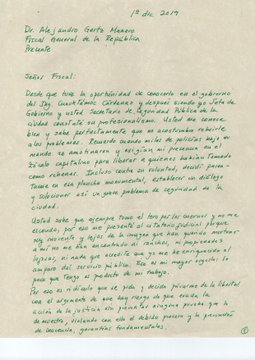 1º dic. 2019
Dr. Alejandro Gertz Manero
Fiscal General de la República
Presente
Señor Fiscal:
Desde que tuve la oportunidad de conocerlo en el gobierno
del Ing. Cuauhtémoc Cárdenas y después siendo yo Jefa de
Gobierno y usted Secretario de Seguridad Pública de la
ciudad constaté su profesionalismo. Usted me conoce
bien y sabe perfectamente que no acostumbro rehuirle
a los problemas. Recuerdo cuando miles de policías
se amotinaron y exigían mi presencia en el
Zócalo capitalino para liberar a quienes habían tomado
como rehenes. Incluso contra su voluntad, decidí
en esa plancha monumental, establecer un diálogo
y solucionar así un grave problema de seguridad de la
ciudad.
Usted sabe que siempre tomo el toro por los cuernos y no me
escondo, por eso me presenté al citatorio judicial porque
soy inocente y lejos de la imagen que han querido mostrar
a mí no me han encontrado ni ranchos, ni propiedades
lujosas, ni nada que acredite que yo me enriquecí al
amparo del servicio público. Ese es mi mayor orgullo: lo
poco que tengo es producto de mi trabajo.
Por eso es ridículo que se pida y decida privarme de la libertad
con el argumento de que hay riesgo de que evada la
acción de la justicia sin presentar ninguna prueba que lo
demuestre, violando con ello el debido proceso y la presunción
de inocencia, garantías fundamentales.
1